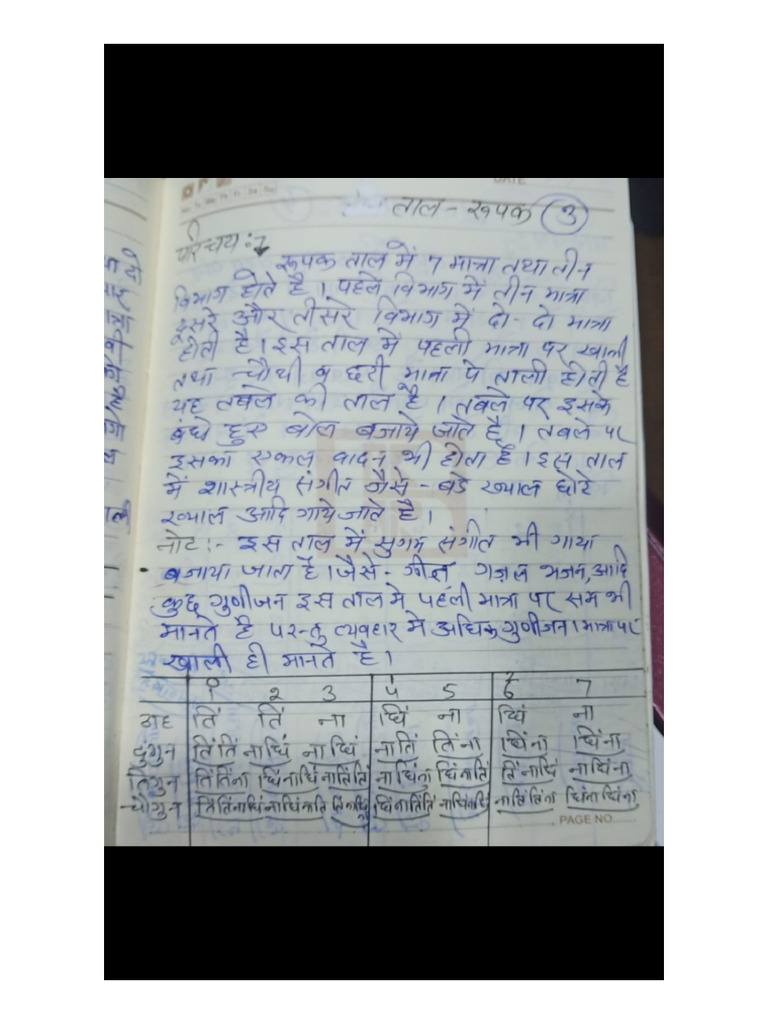 ताल - रूपक (3)
परिचय :-
रूपक ताल में 7 मात्रा तथा तीन
विभाग होते है । पहले विभाग में तीन मात्रा
दूसरे और तीसरे विभाग में दो - दो मात्रा
होती है । इस ताल में पहली मात्रा पर खाली
तथा चौथी व छटी मात्रा पे ताली होती है
यह तबले की ताल है । तबले पर इसके
बंधे हुए बोल बजाये जाते है । तबले पर
इसका एकल वादन भी होता है । इस ताल
में शास्त्रीय संगीत जैसे - बडे ख्याल छोटे
ख्याल आदि गाये जाते है ।
नोट :- इस ताल में सुगम संगीत भी गाया
बजाया जाता है । जैसे - गीत, गज़ल भजन, आदि
कुछ गुणीजन इस ताल मे पहली मात्रा पर सम भी
मानते है परन्तु व्यवहार मे अधिक गुणीजन 1 मात्रा पर
खाली ही मानते है ।
1 2 3 4 5 6 7
ठाह तिं तिं ना धिं ना धिं ना
दुगुन तिंतिं नाधिं नाधिं नातिं तिंना धिंना धिंना
तिगुन तिंतिंना धिंनाधिं नातिंतिं नाधिंना धिंनातिं तिंनाधिं नाधिंना
चौगुन तिंतिंनाधिं नाधिंनातिं तिंनाधिंना धिंनातिंतिं नाधिंनाधिं नातिंतिंना धिंनाधिंना
PAGE NO.......